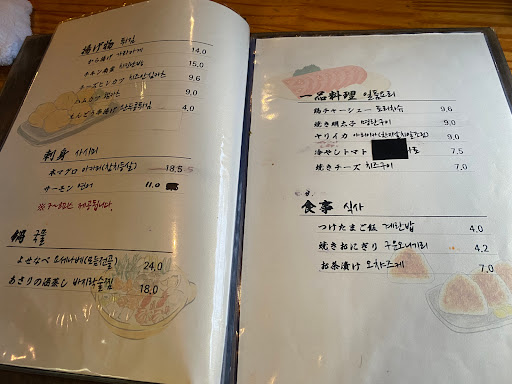 揚げ物 튀김
から揚げ 가라아게 14.0
チキン南蛮 치킨난반 15.0
チーズヒレカツ 치즈안심까스 9.6
ハムカツ 햄까스 9.0
4.0
刺身 사시미
本マグロ 아카미(참치등살) 18.5
サーモン 연어 11.0
鍋 국물
よせなべ 요세나베(모듬전골) 24.0
あさりの酒蒸し 바지락술찜 18.0
一品料理 일품요리
鶏チャーシュー 토리차슈 9.6
焼き明太子 명란구이 9.0
ヤリイカ 9.0
冷やしトマト 7.5
焼きチーズ 치즈구이 7.0
食事 식사
つけたまご飯 계란밥 4.0
焼きおにぎり 구운오니기리 4.2
お茶漬け 오챠즈케 7.0